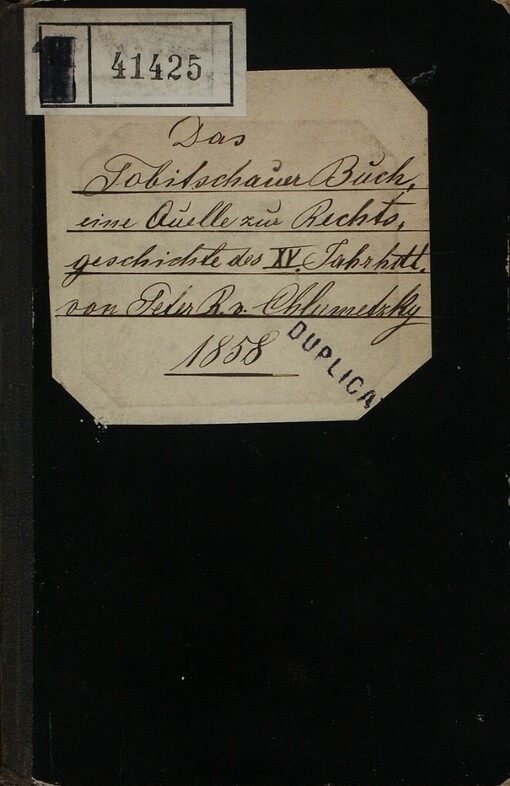 41425
Das
Tobitschauer Buch,
eine Quelle zur Rechts,
geschichte des XV. Jahrhdt.
von Peter R. v. Chlumetzky
1858
DUPLICA